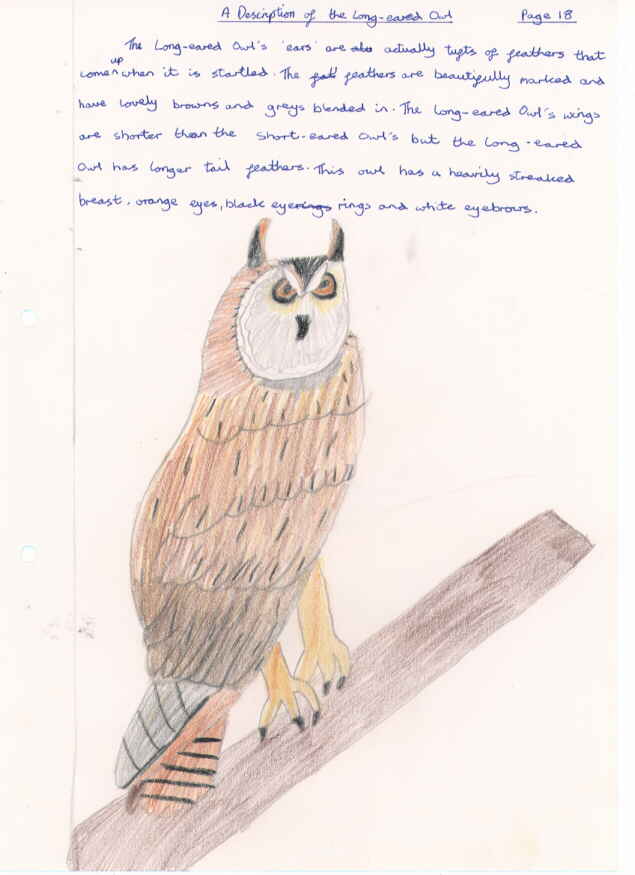 A Description of the Long-eared Owl Page 18
The Long-eared Owl's 'ears' are actually tufts of feathers that
comes up when it is startled. The feathers are beautifully marked and
have lovely browns and greys blended in. The Long-eared Owl's wings
are shorter than the Short-eared Owl's but the Long-eared
Owl has longer tail feathers. This owl has a heavily streaked
breast, orange eyes, black eye rings and white eyebrows.